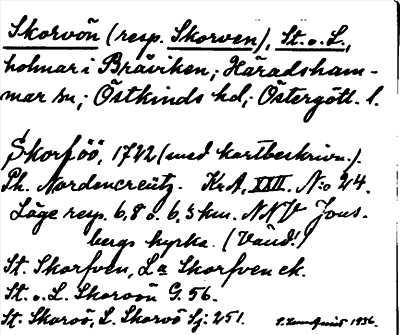 Skorvön (resp. Skorven), St. o. L.,
holmar i Bråviken; Häradsham-
mar sn; Östkinds hd; Östergötl. l.
Skorföö, 1722 (med kartbeskrivn.).
Ph. Nordencreutz. KrA, XXII. N:o 24.
Läge resp. 6,8 o. 6,3 km. NNV Jons-
bergs kyrka. (Vänd!)
St. Skorfven, La Skorfven ek.
St. o. L. Skorvön G. 56.
St. Skorvö, L. Skorvö Sj: 251.
1936.